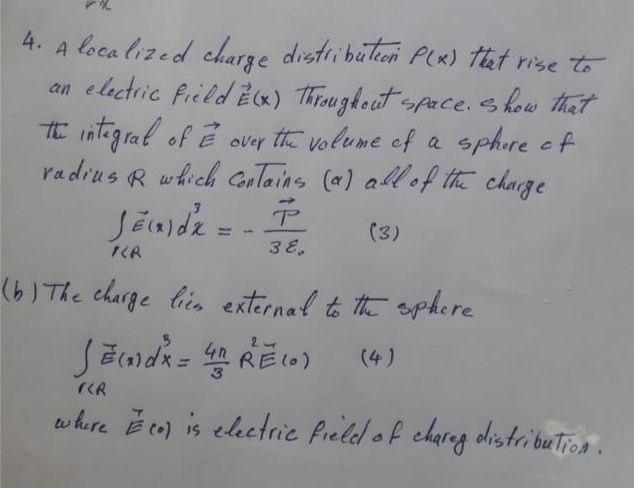 4. A localized charge distribution P(x) that rise to
an electric field E⃗(x) Throughout space. show that
the integral of E⃗ over the volume of a sphere of
radius R which contains (a) all of the charge
∫ E⃗(x) d³x = - P⃗ / 3ε₀ (3)
r<R
(b) The charge lies external to the sphere
∫ E⃗(x) d³x = 4π/3 R² E⃗(0) (4)
r<R
where E⃗(0) is electric field of chareg distribution.